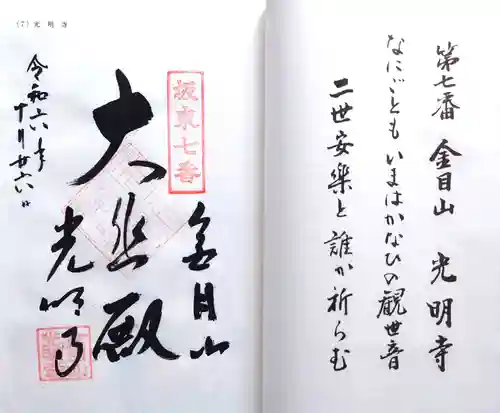 第七番 金目山 光明寺
なにごとも いまはかなひの観世音
二世安楽と 誰か祈らむ
(7) 光明寺
坂東七番
金目山
大悲殿
光明寺
令和六年
十月廿六日